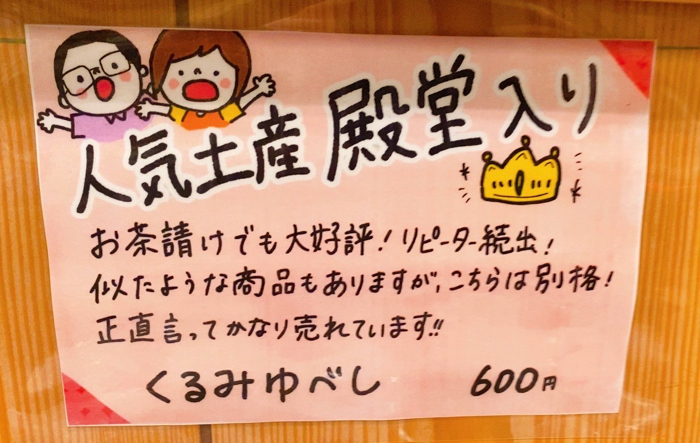 人気土産 殿堂入り
お茶請けでも大好評！リピーター続出！
似たような商品もありますが、こちらは別格！
正直言ってかなり売れています!!
くるみゆべし 600円